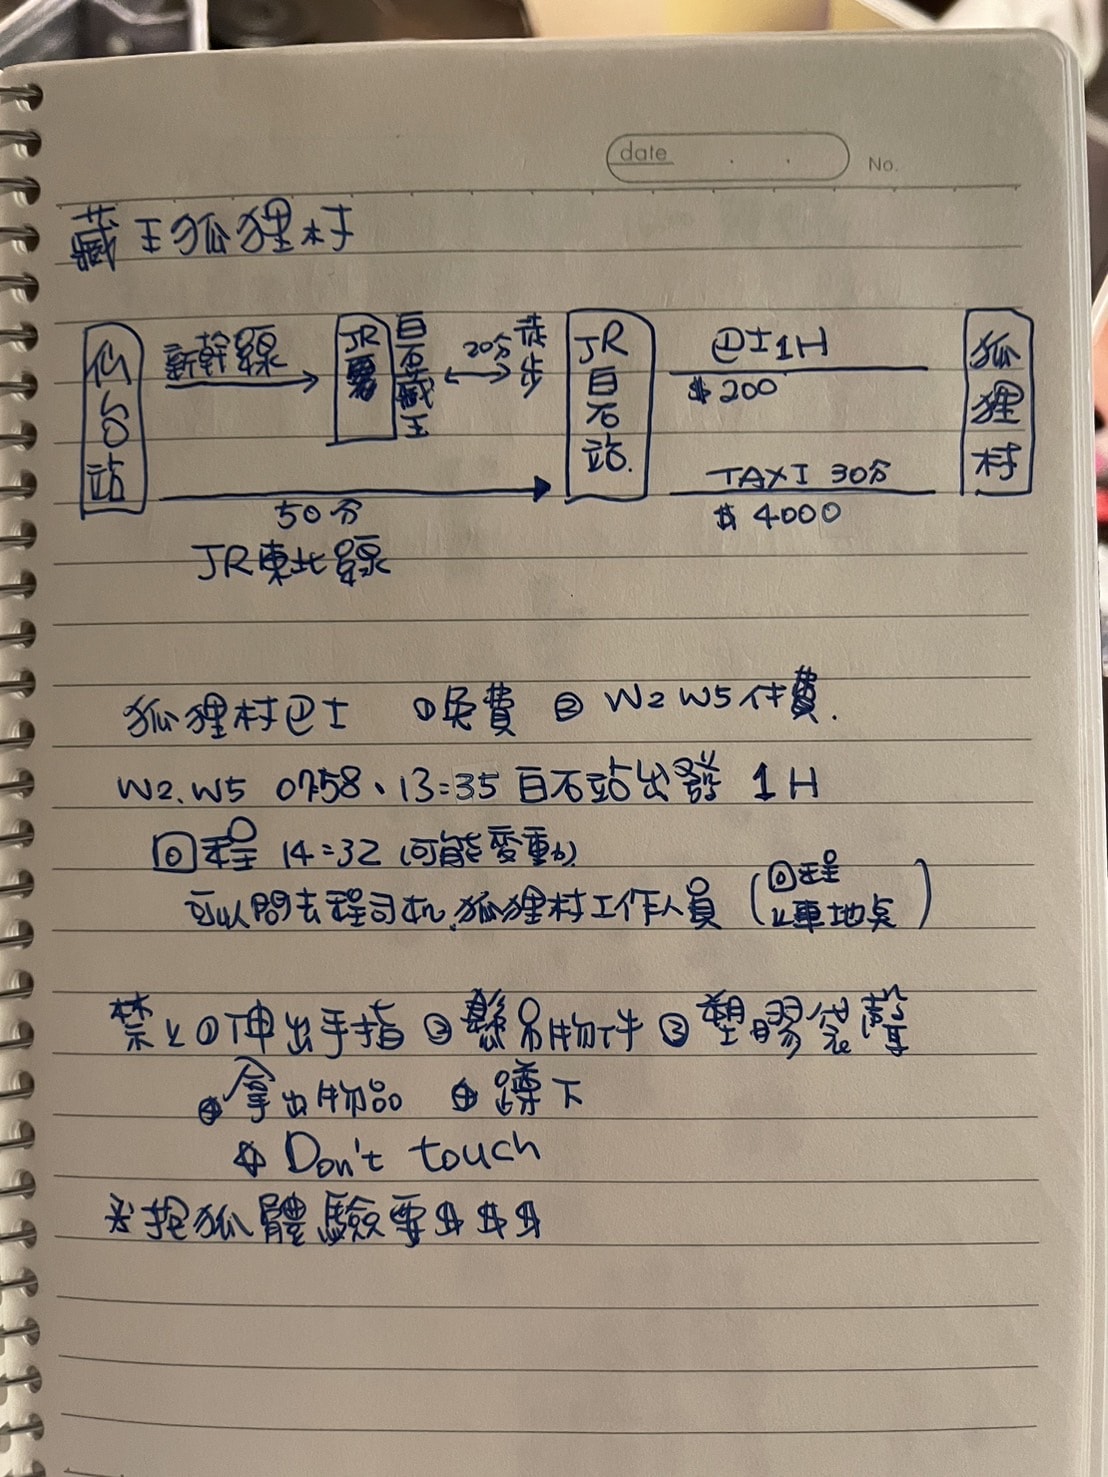 date . . No.
藏王狐狸村
仙台站 新幹線 JR 白石藏王 20分 徒步 JR白石站 巴士1H 狐狸村
$200
TAXI 30分
50分 $4000
JR東北線
狐狸村巴士 ①免費 ② W2 W5付費.
W2.W5 0758、13:35 白石站出發 1H
回程 14:32 (可能變動)
可以問去程司机.狐狸村工作人員 (回程上車地點)
禁止①伸出手指②懸吊物件③塑膠袋聲
④拿出物品 ⑤蹲下
⑥ Don't touch
※抱狐體驗要$$$